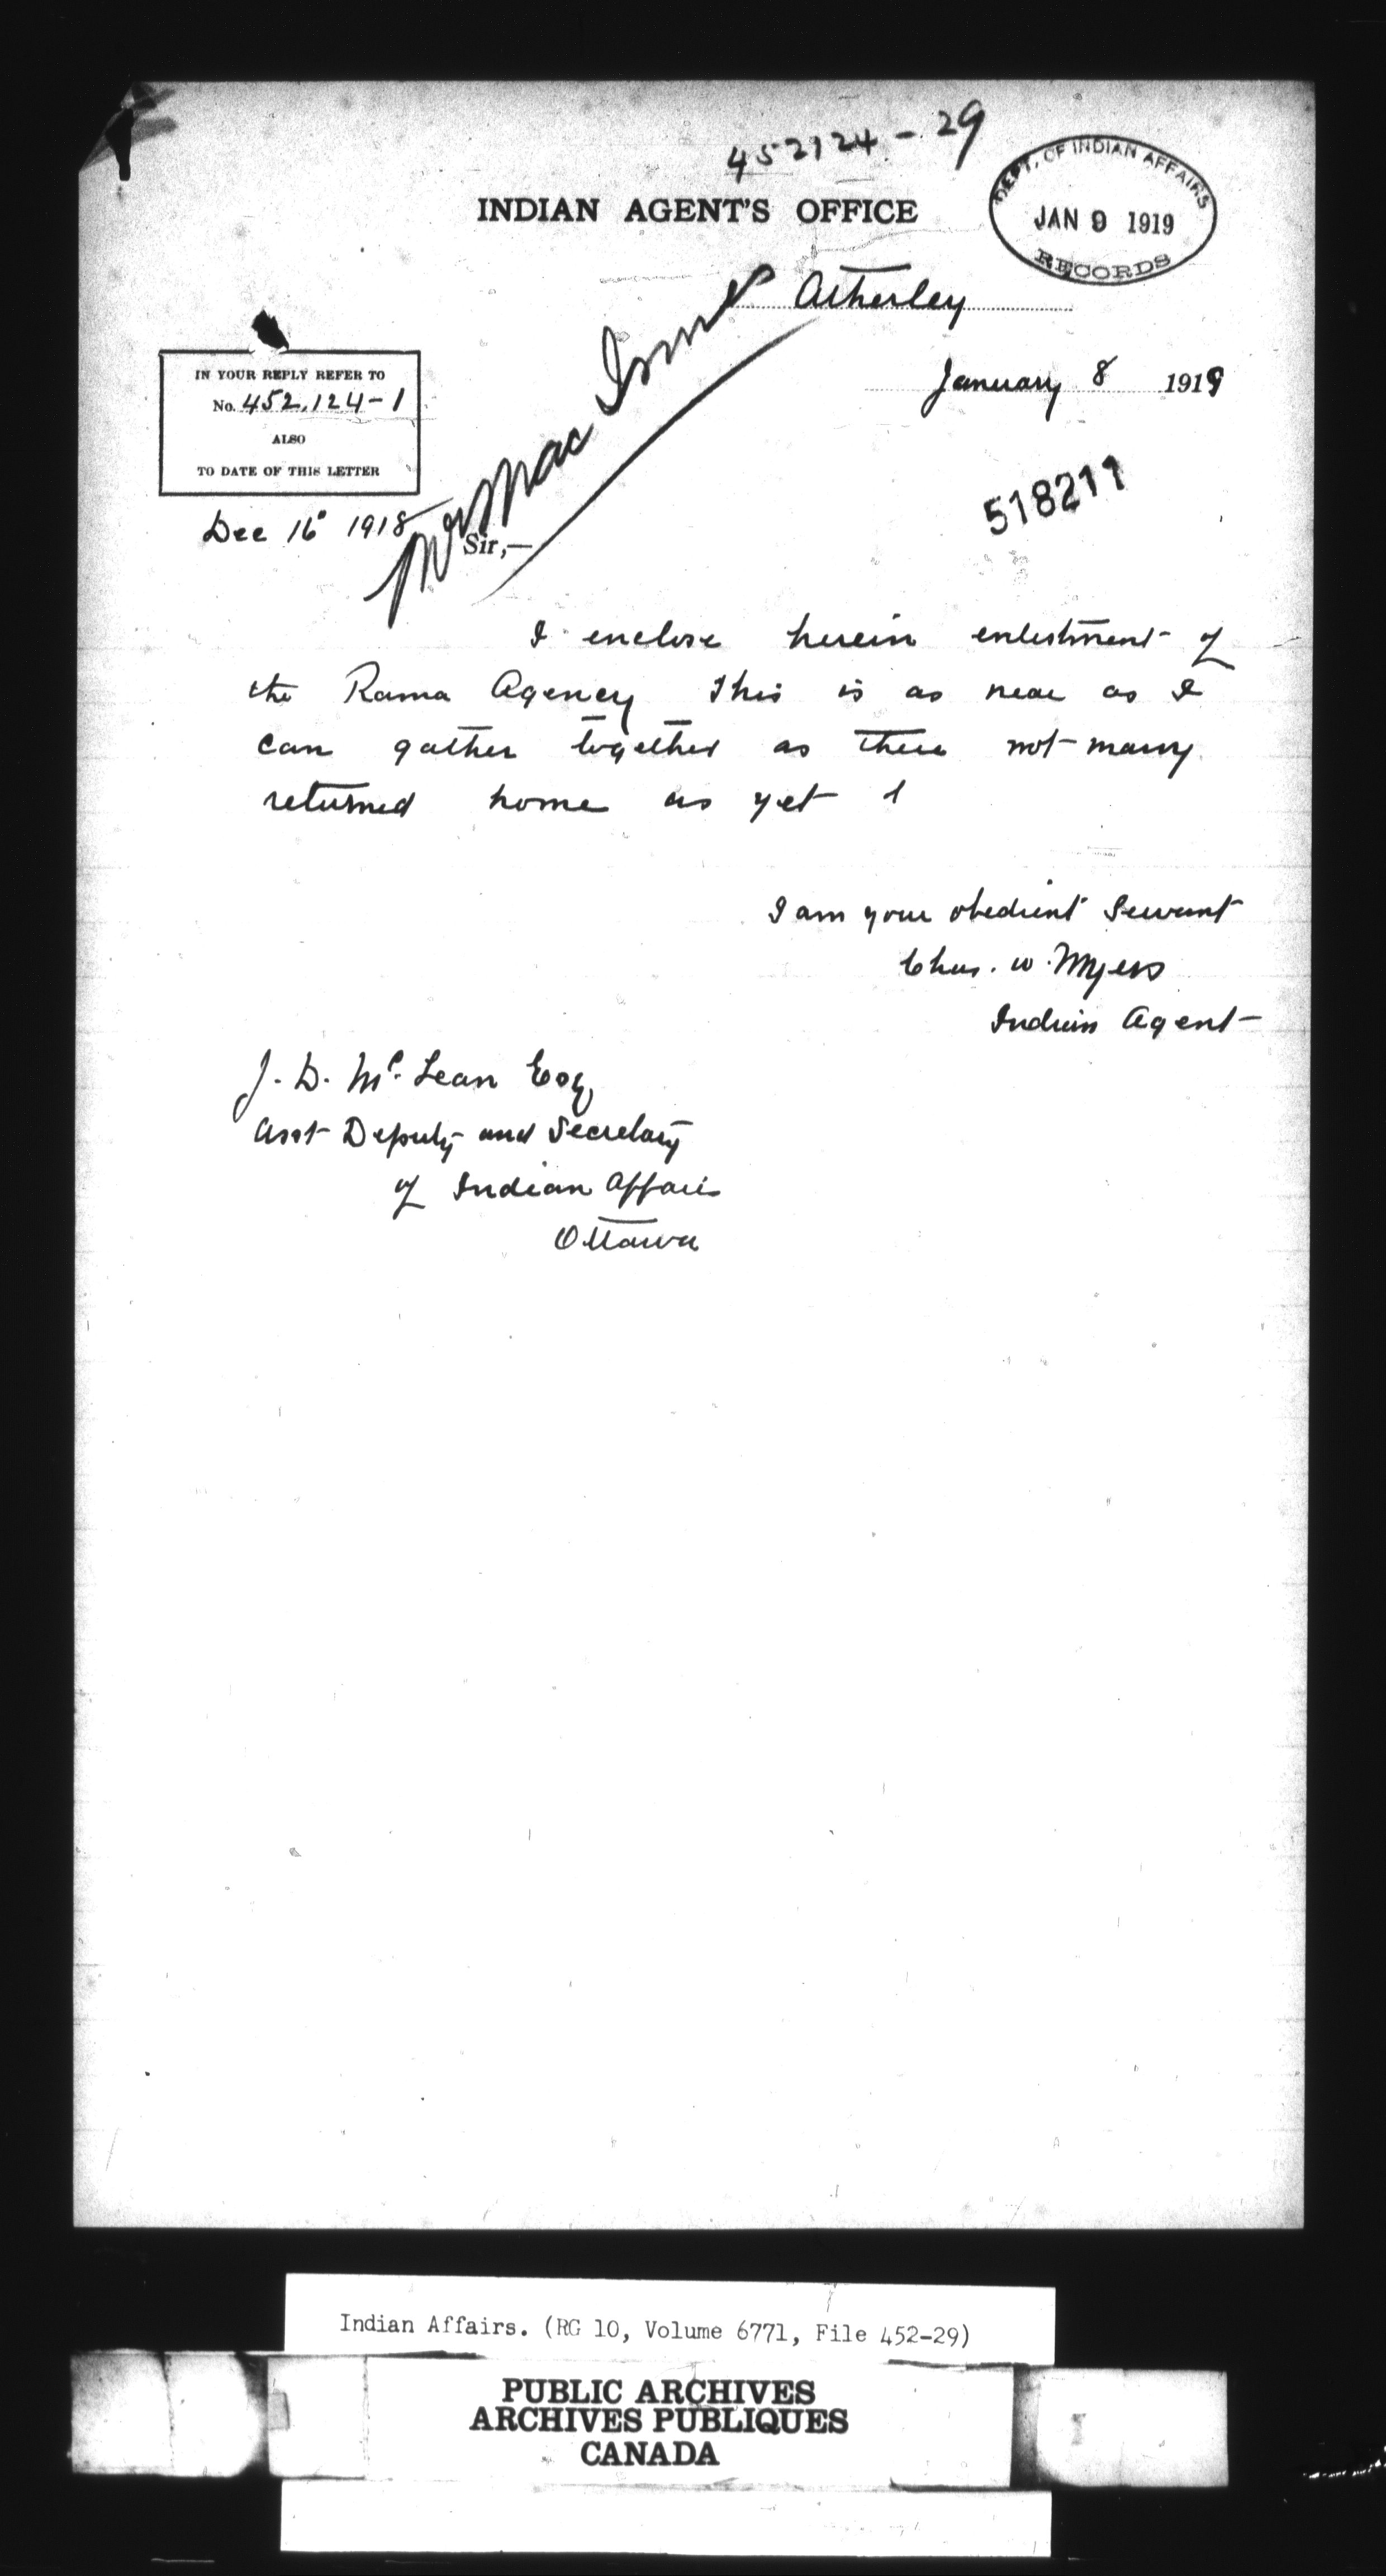 452124-29
INDIAN AGENT'S OFFICE
DEPT. OF INDIAN AFFAIRS
JAN 9 1919
RECORDS
Atherley
January 8 1919
IN YOUR REPLY REFER TO
No. 452,124-1
ALSO
TO DATE OF THIS LETTER
Dec 16 1918
Mr Mac Innes
518211
Sir,—
I enclose herein enlistment of
the Rama Agency This is as near as I
can gather together as there not many
returned home as yet
I am your obedient Servant
Chas. W. Myers
Indian Agent
J. D. Mc. Lean Esq
Asst Deputy and Secretary
of Indian Affairs
Ottawa
Indian Affairs. (RG 10, Volume 6771, File 452-29)
PUBLIC ARCHIVES
ARCHIVES PUBLIQUES
CANADA